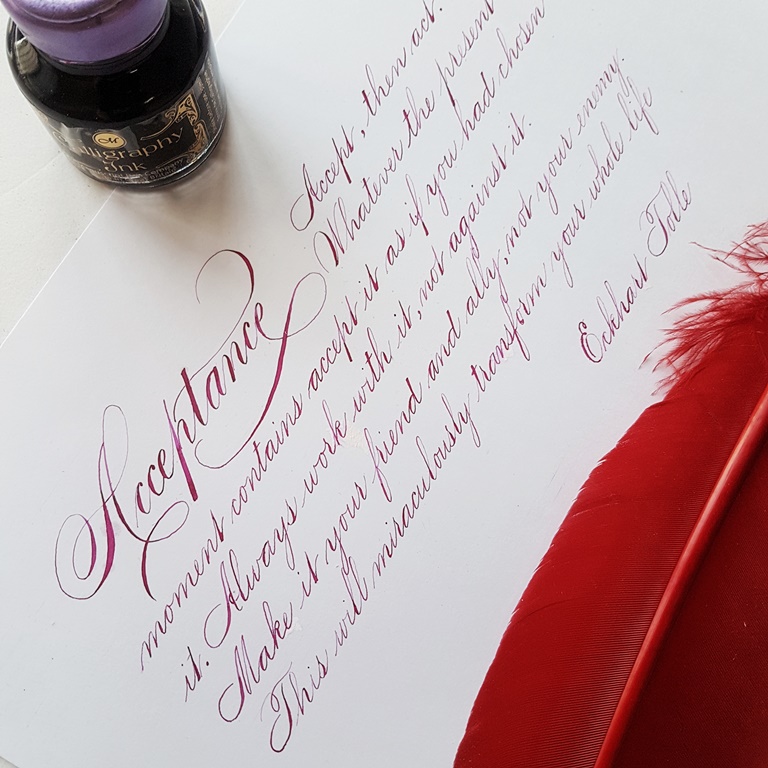 Calligraphy
Ink
Acceptance
Accept, then act.
Whatever the present
moment contains accept it as if you had chosen
it. Always work with it, not against it.
Make it your friend and ally, not your enemy.
This will miraculously transform your whole life
Eckhart Tolle